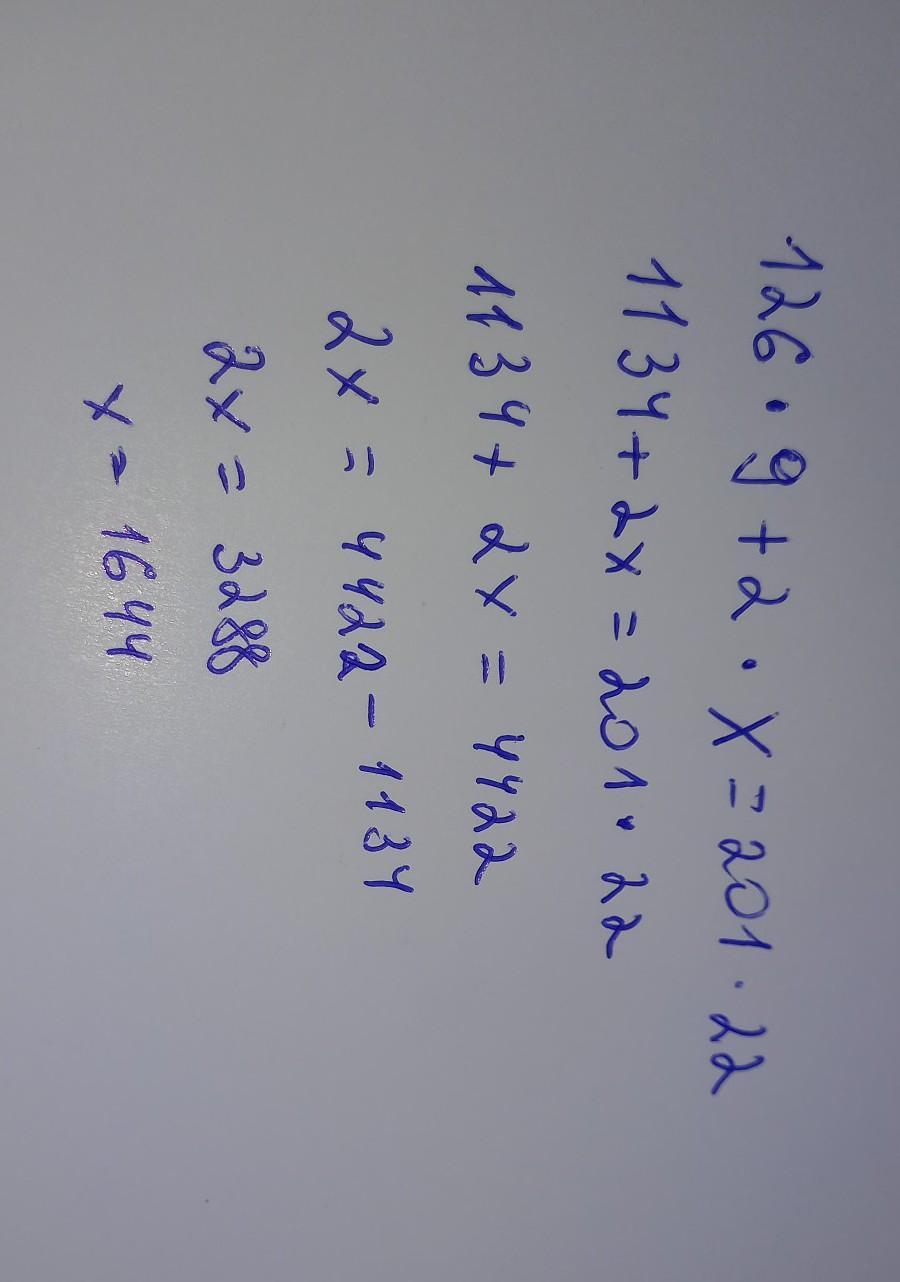 126 · 9 + 2 · X = 201 · 22
1134 + 2x = 201 · 22
1134 + 2x = 4422
2x = 4422 - 1134
2x = 3288
x = 1644